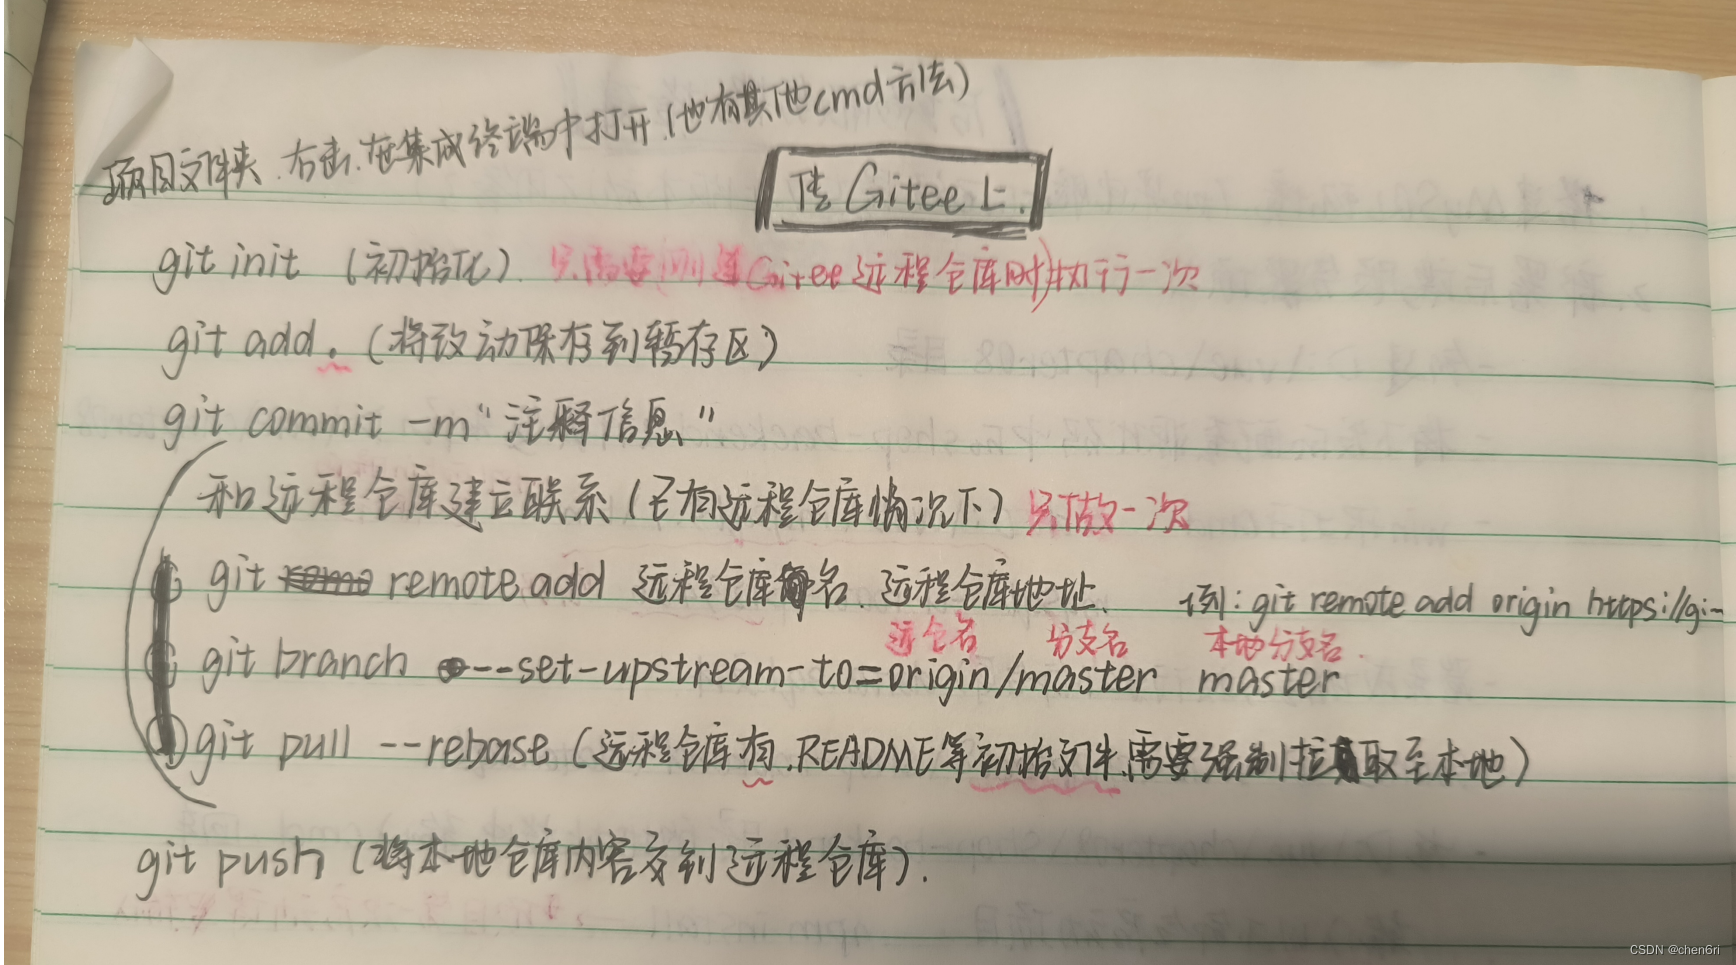 项目文件夹.右击.在集成终端中打开.(也有其他cmd方法)
传Gitee上.
git init (初始化). 只需要(刚建Gitee远程仓库时)执行一次
git add . (将改动保存到暂存区)
git commit -m"注释信息"
和远程仓库建立联系(已有远程仓库情况下) 只做一次
git remote add 远程仓库名.远程仓库地址. 例:git remote add origin https://gi-
远仓名 分支名 本地分支名.
git branch --set-upstream-to=origin/master master
git pull --rebase (远程仓库有.README等初始文件,需要强制拉取至本地)
git push (将本地仓库内容交到远程仓库).
CSDN @chen6ri